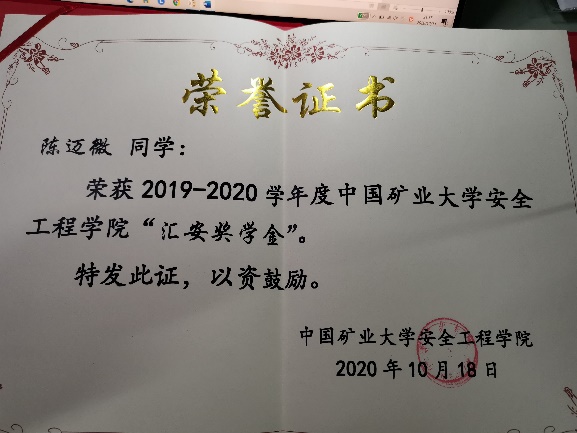 荣誉证书
陈迈微 同学：
荣获2019-2020学年度中国矿业大学安全
工程学院“汇安奖学金”。
特发此证，以资鼓励。
中国矿业大学安全工程学院
2020年10月18日